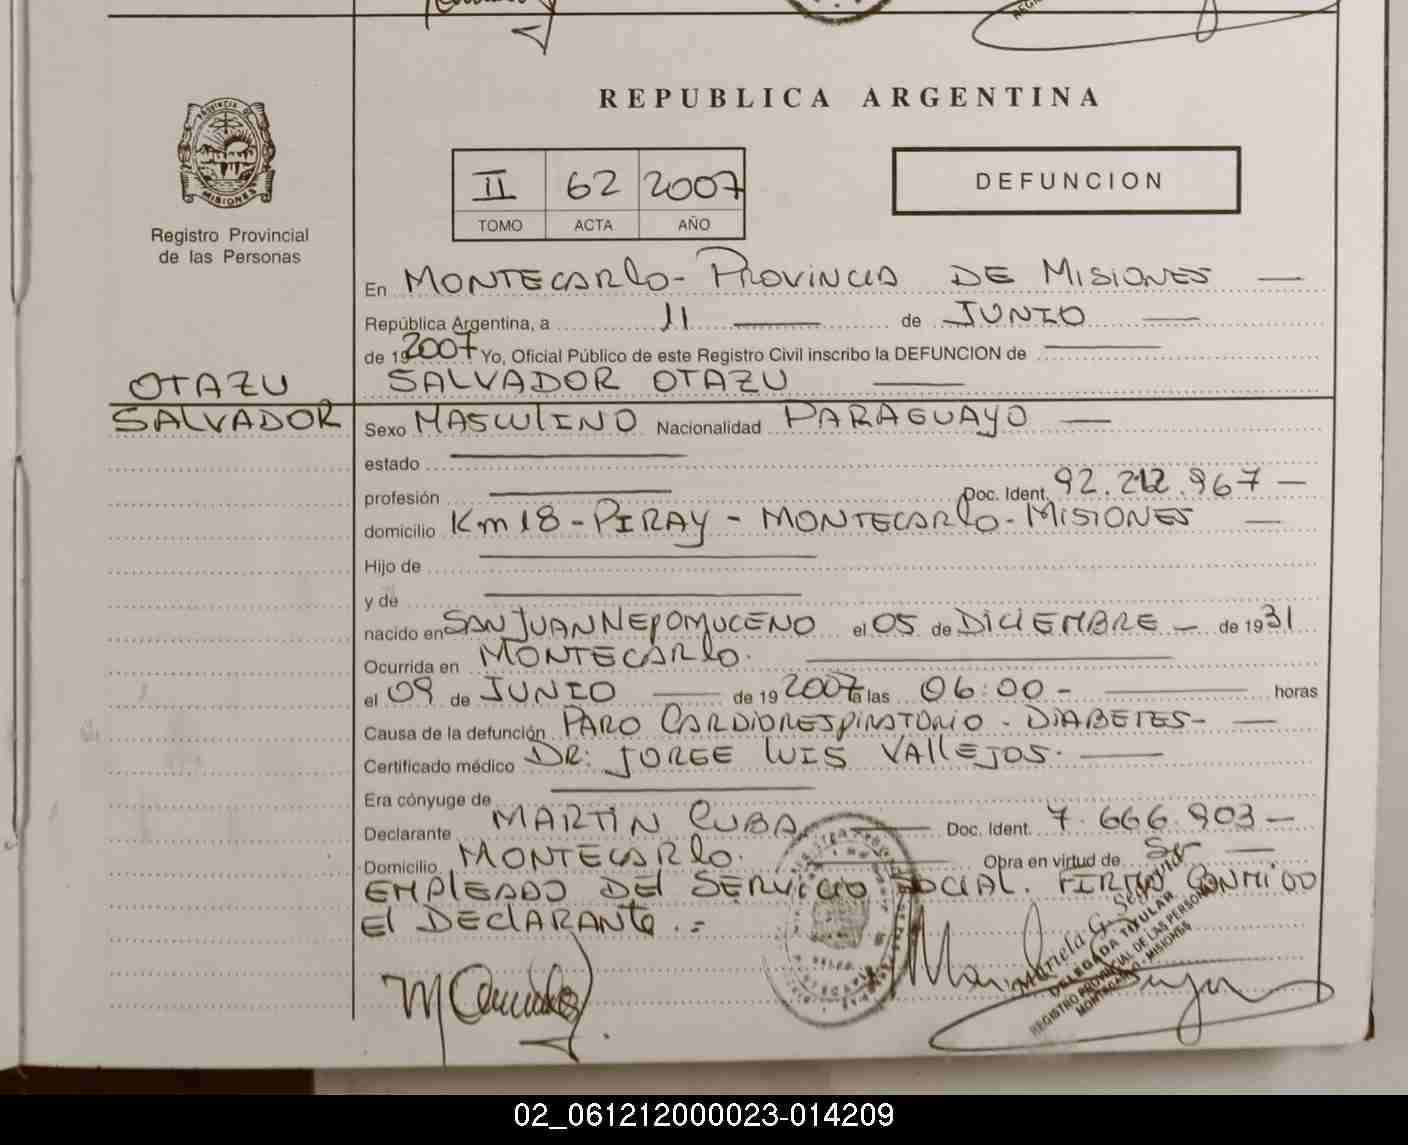 REPUBLICA ARGENTINA
PROVINCIA DE
MISIONES
Registro Provincial
de las Personas
II 62 2007
TOMO ACTA AÑO
DEFUNCION
En MONTECARLO - PROVINCIA DE MISIONES —
República Argentina, a 11 — de JUNIO —
de 19 2007 Yo, Oficial Público de este Registro Civil inscribo la DEFUNCION de —
OTAZU SALVADOR OTAZU —
SALVADOR Sexo MASCULINO Nacionalidad PARAGUAYO —
estado —
profesión — Doc. Ident. 92.212.967 —
domicilio Km 18 - PIRAY - MONTECARLO - MISIONES —
Hijo de —
y de —
nacido en SAN JUAN NEPOMUCENO el 05 de DICIEMBRE — de 1931
Ocurrida en MONTECARLO. —
el 09 de JUNIO — de 19 2007 a las 06:00 - — horas
Causa de la defunción PARO CARDIORESPIRATORIO - DIABETES - —
Certificado médico DR. JORGE LUIS VALLEJOS. —
Era cónyuge de —
Declarante MARTIN CUBA — Doc. Ident. 7.666.903 —
Domicilio MONTECARLO. — Obra en virtud de Ser —
EMPLEADO DEL SERVICIO SOCIAL. FIRMA CONMIGO
El DECLARANTE .=
Mariela G. Segovia
DELEGADA TITULAR
REGISTRO PROVINCIAL DE LAS PERSONAS
MONTECARLO - MISIONES
02_061212000023-014209